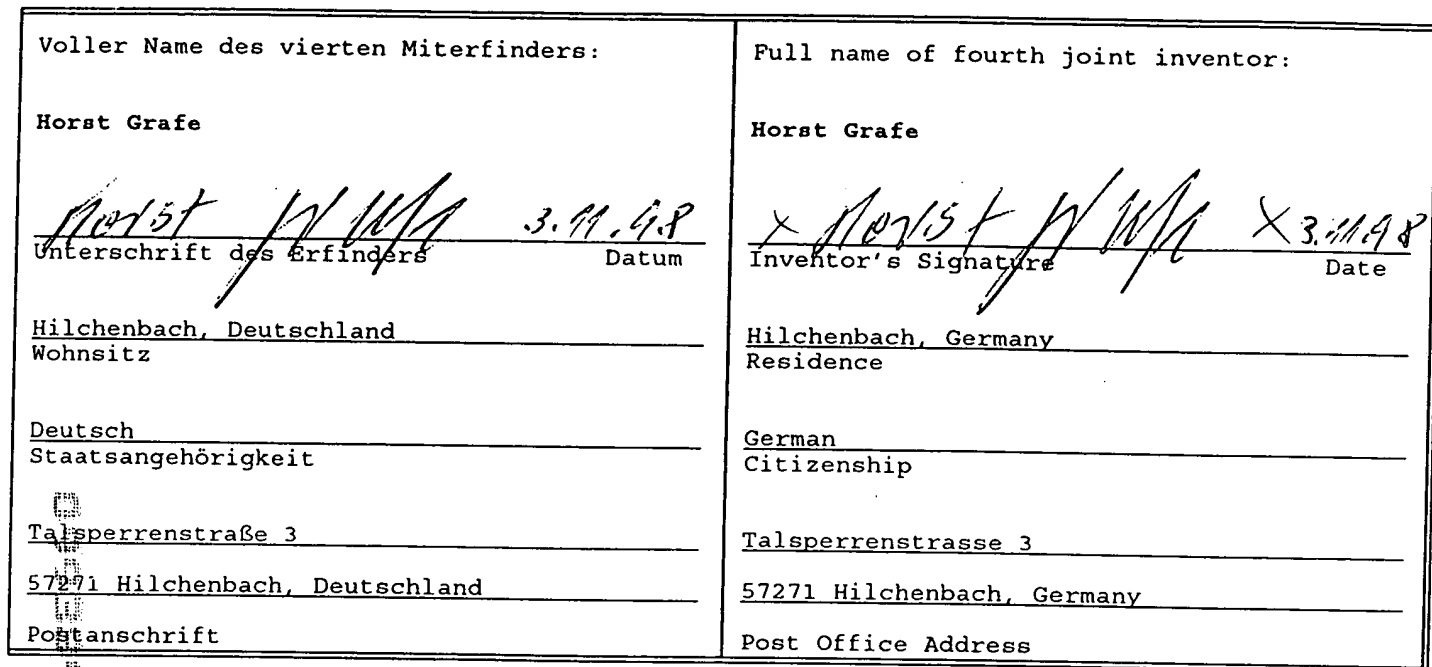 Voller Name des vierten Miterfinders:
Horst Grafe
Horst 3.11.98
Unterschrift des Erfinders Datum
Hilchenbach, Deutschland
Wohnsitz
Deutsch
Staatsangehörigkeit
Talsperrenstraße 3
57271 Hilchenbach, Deutschland
Postanschrift
Full name of fourth joint inventor:
Horst Grafe
x Horst x 3.11.98
Inventor's Signature Date
Hilchenbach, Germany
Residence
German
Citizenship
Talsperrenstrasse 3
57271 Hilchenbach, Germany
Post Office Address